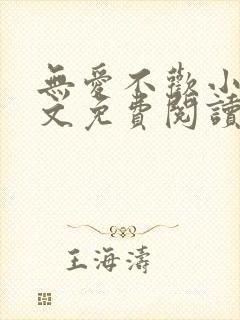 無愛不歡小
文免費閱讀
王海濤